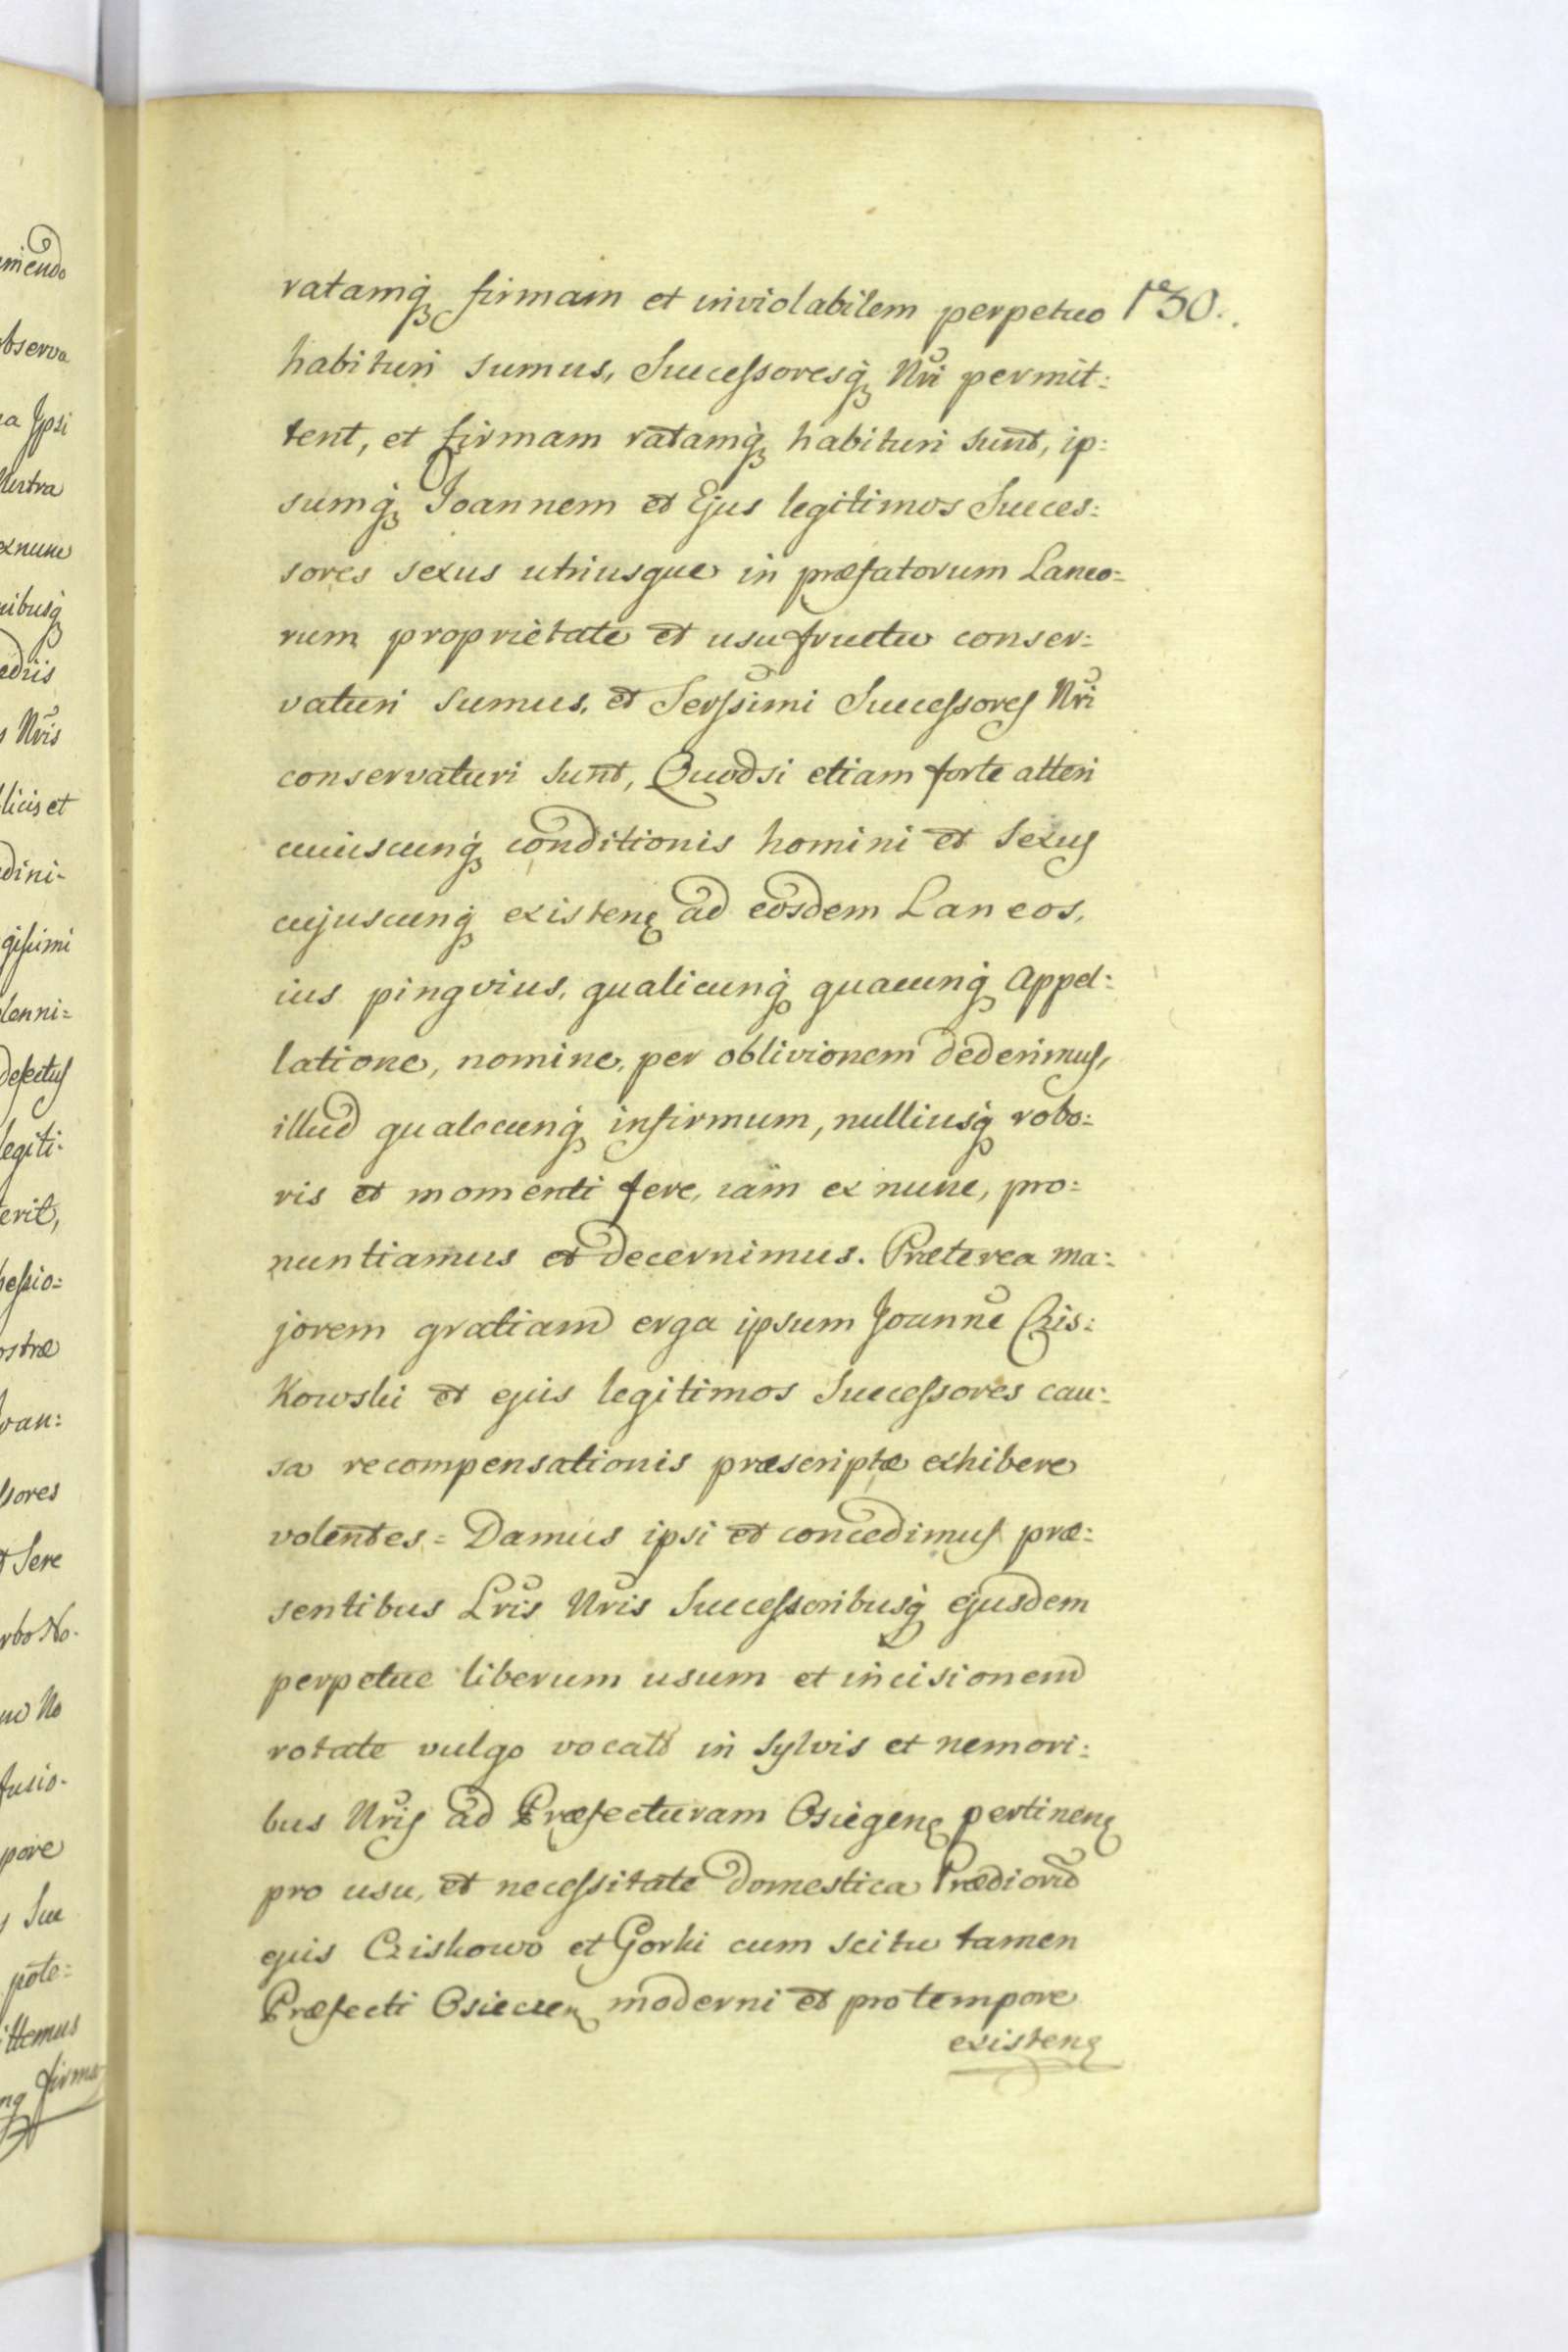 ratamq́ꝫ firmam et inviolabilem perpetuo 130.
habituri sumus, Successoresq́ꝫ Nr̃i permit:
tent, et firmam ratamq́ꝫ habituri sunt, ip:
sumq́ꝫ Joannem et Ejus legitimos Succes:
sores sexus utriusque in præfatorum Laneo:
rum proprietate et usufructu conser:
vaturi sumus, et Serssimi Successores Nr̃i
conservaturi sunt, Quodsi etiam forte alteri
cuiuscunq́ꝫ conditionis homini et sexus
cujuscunq́ꝫ existenꝫ ad eosdem Laneos,
ius pingvius, qualicunq́ꝫ quacunq́ꝫ Appel:
latione, nomine, per oblivionem dederimus,
illud qualecunq́ꝫ infirmum, nulliusq́ꝫ robo:
ris et momenti fere, iam ex nunc, pro:
nuntiamus et decernimus. Præterea ma:
jorem gratiam erga ipsum Joannẽ Czis:
Kowski et ejus legitimos Successores cau:
sa recompensationis præscriptæ exhibere
volentes = Damus ipsi et concedimus præ:
sentibus Lr̃is Nr̃is Successoribusq́ꝫ ejusdem
perpetue liberum usum et incisionem
rotate vulgo vocat in Sylvis et nemori:
bus Nr̃is ad Præfecturam Osiegenꝫ pertinenꝫ
pro usu, et necessitate domestica Prædiorũ
ejus Cziskowo et Gorki cum scitu tamen
Præfecti Osieczenꝫ moderni et pro tempore
existenꝫ